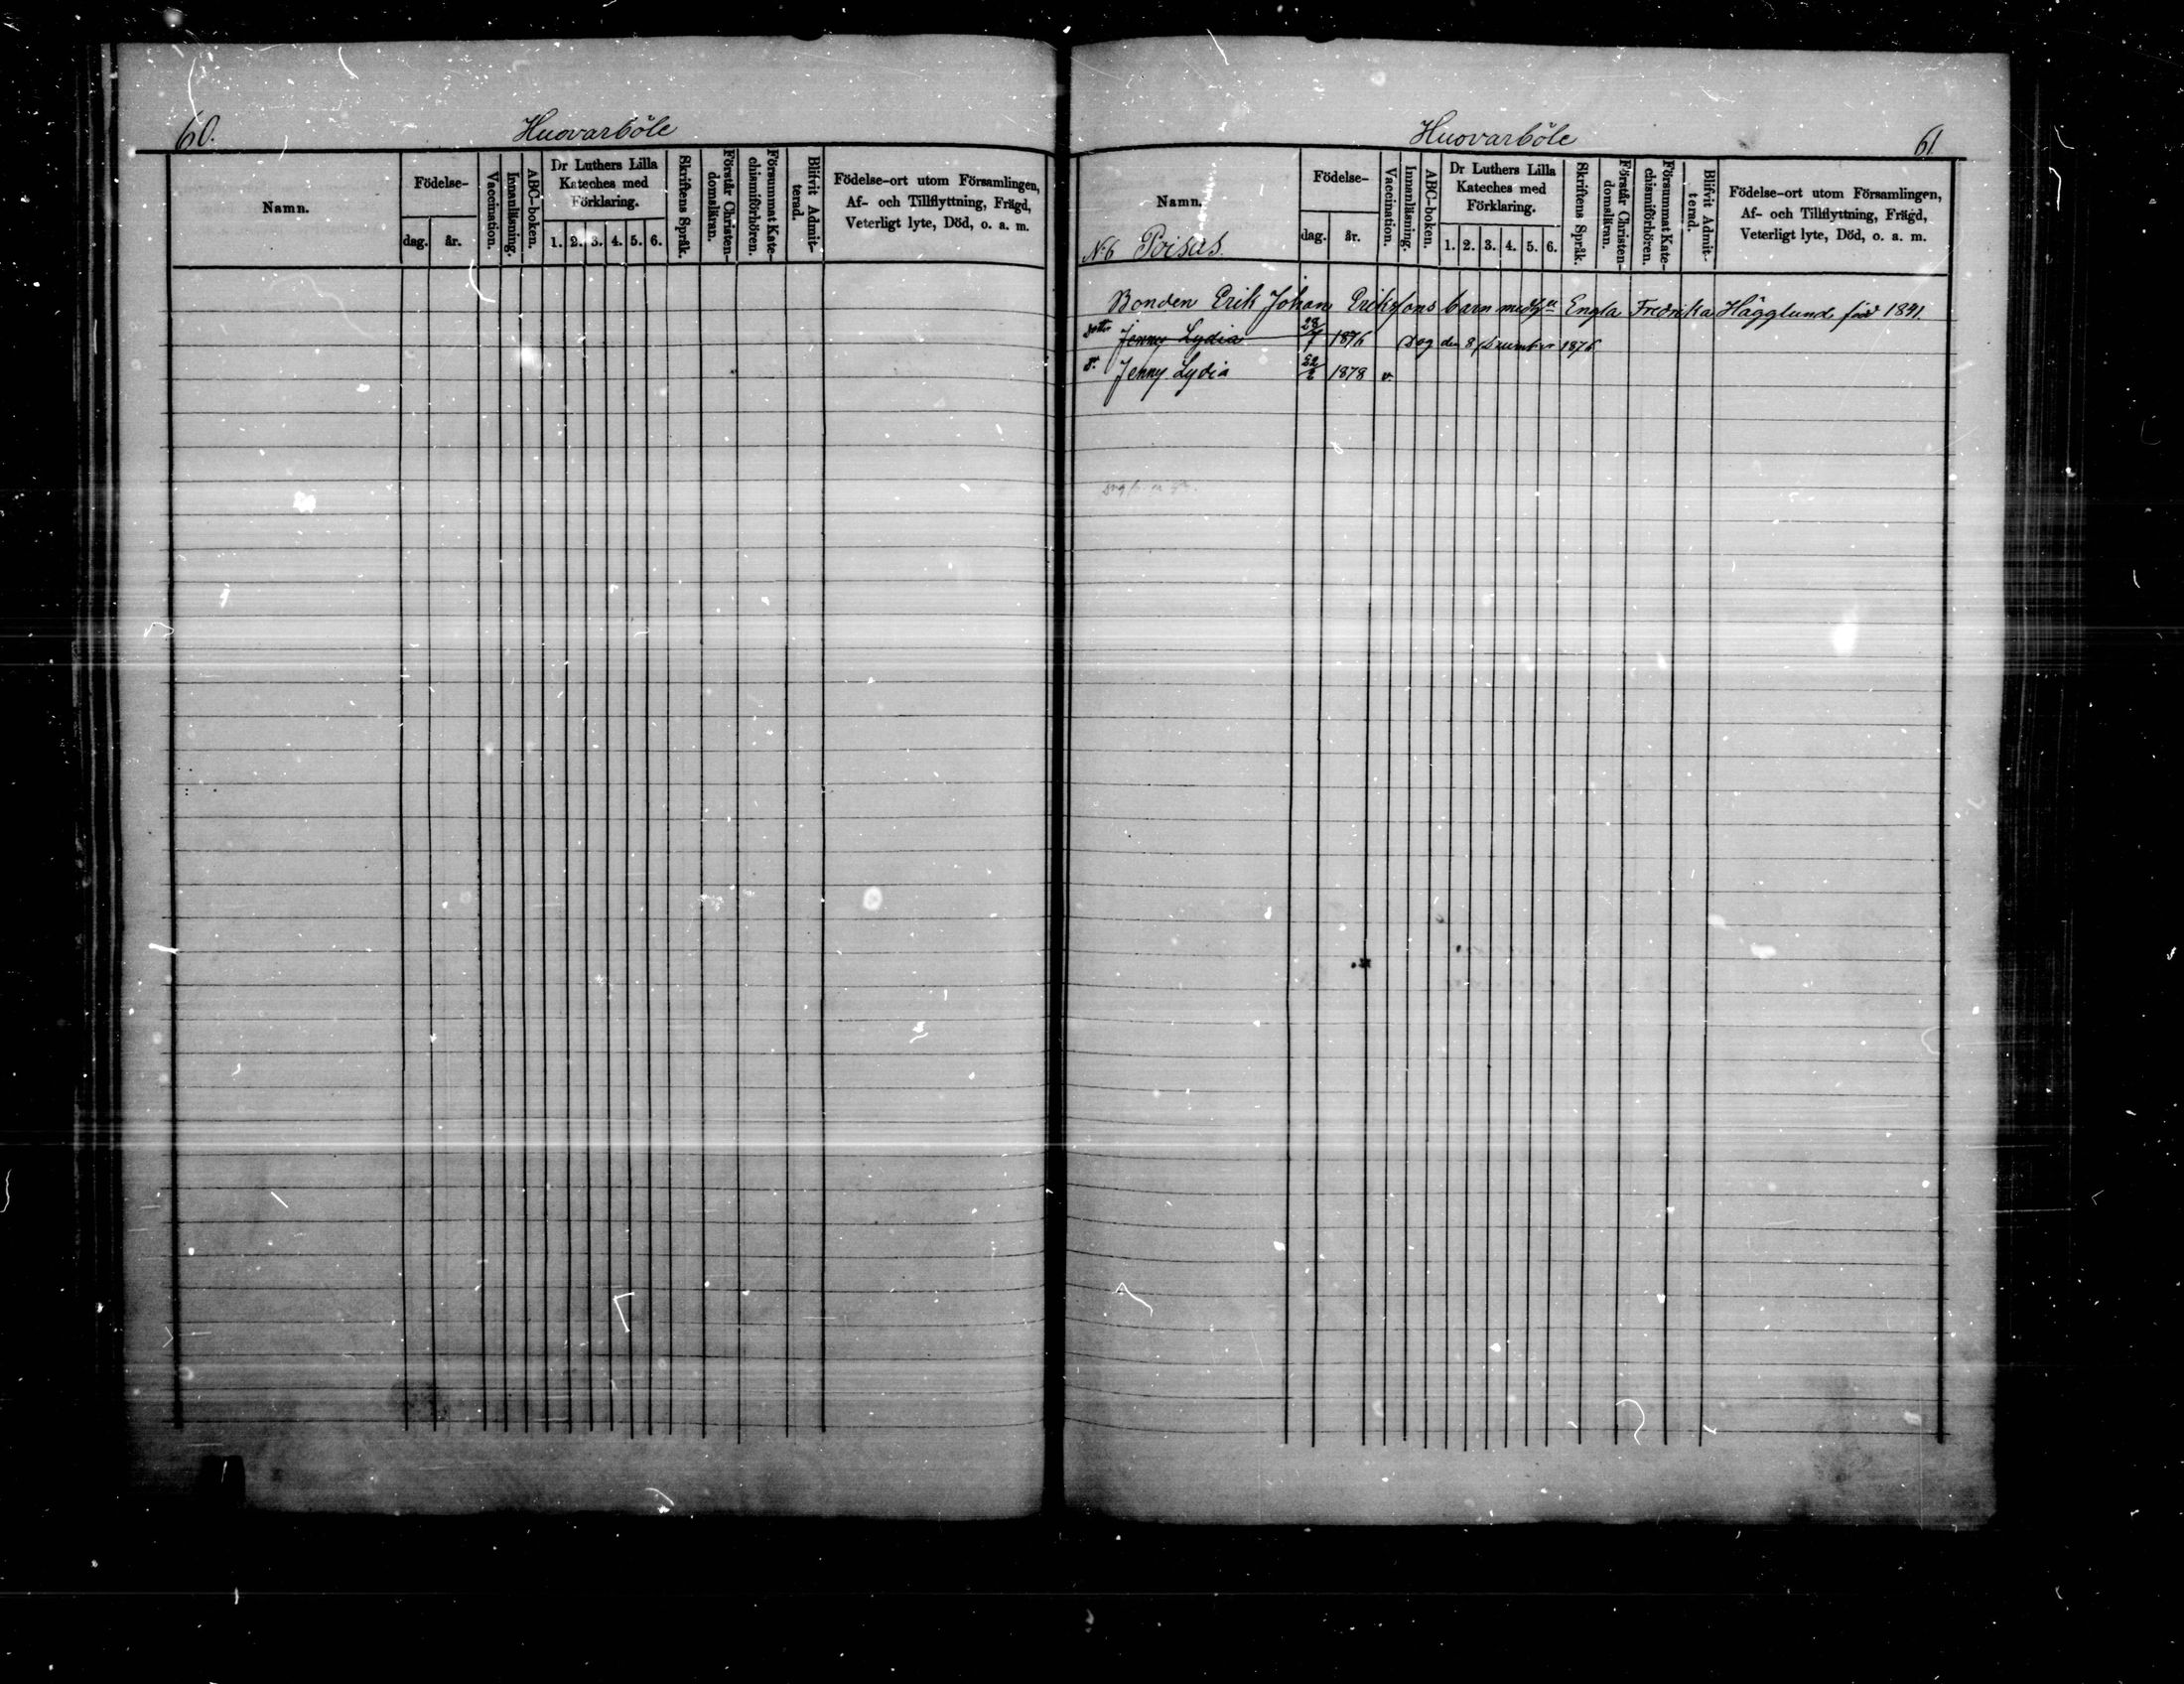 60.
Huovarböle
Namn.
Födelse-
dag. år.
Vaccination.
Innanläsning.
ABC-boken.
Dr Luthers Lilla
Kateches med
Förklaring.
1. 2. 3. 4. 5. 6.
Skriftens Språk.
Förstår Christen-
domsläran.
Försummat Kate-
chismiförhören.
Blifvit Admit-
terad.
Födelse-ort utom Församlingen,
Af- och Tillflyttning, Frägd,
Veterligt lyte, Död, o. a. m.
Huovarböle
61.
Namn.
No 6 Poisus.
Födelse-
dag. år.
Vaccination.
Innanläsning.
ABC-boken.
Dr Luthers Lilla
Kateches med
Förklaring.
1. 2. 3. 4. 5. 6.
Skriftens Språk.
Förstår Christen-
domsläran.
Försummat Kate-
chismiförhören.
Blifvit Admit-
terad.
Födelse-ort utom Församlingen,
Af- och Tillflyttning, Frägd,
Veterligt lyte, Död, o. a. m.
Bonden Erik Johan Erikssons barn med Engla Fredrika Hägglund född 1841.
Jenny Lydia 1876 Dog den 8 1876
Jenny Lydia 22/2 1878 v.